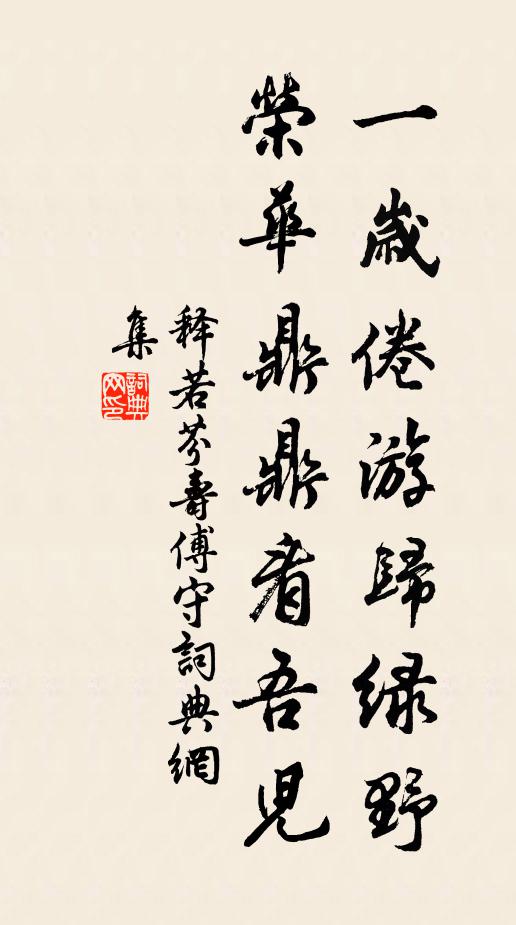 一歳倦游歸緑野
榮華鼎鼎看吾兒
释若芬壽傅守詞典網
集
詞典網印